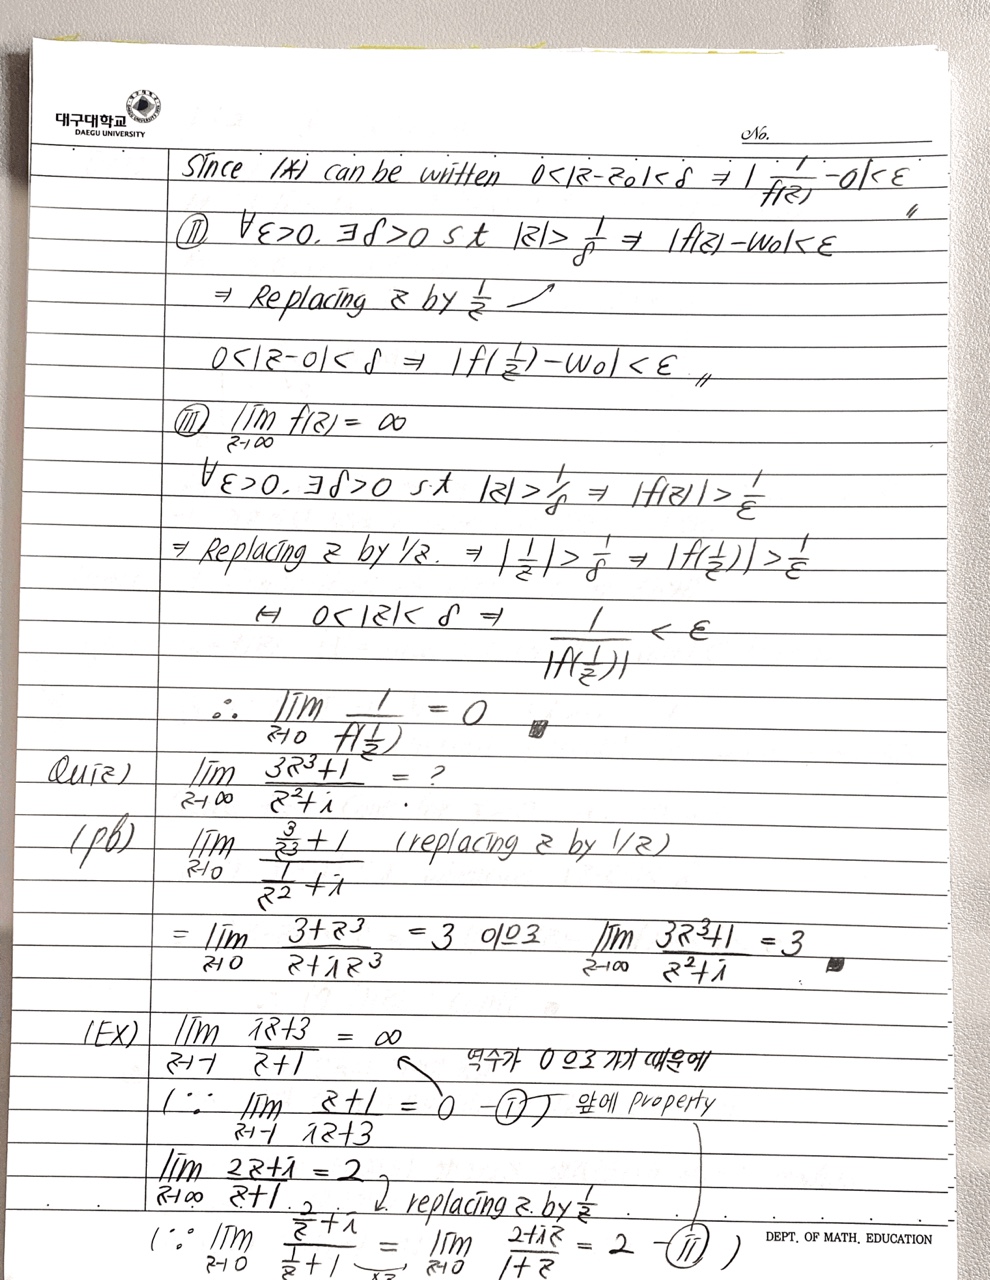 대구대학교
DAEGU UNIVERSITY
No.
Since (*) can be written 0<|z-z0|<δ ⇒ |1/f(z) -0|<ε 〃
Ⅱ ∀ε>0. ∃δ>0 s t |z|>1/δ ⇒ |f(z)-w0|<ε
⇒ Replacing z by 1/z
0<|z-0|<δ ⇒ |f(1/z)-w0|<ε 〃
Ⅲ lim z→∞ f(z) = ∞
∀ε>0. ∃δ>0 s.t |z|>1/δ ⇒ |f(z)|>1/ε
⇒ Replacing z by 1/z. ⇒ |1/z|>1/δ ⇒ |f(1/z)|>1/ε
⇔ 0<|z|<δ ⇒ 1/|f(1/z)| < ε
∴ lim z→0 1/f(1/z) = 0 ■
Quiz) lim z→∞ (3z³+1)/(z²+i) = ?
(pb) lim z→0 (3/z³ + 1)/(1/z² + i) (replacing z by 1/z)
= lim z→0 (3+z³)/(z+iz³) = 3 이으로 lim z→∞ (3z³+1)/(z²+i) = 3 ■
(EX) lim z→-1 (iz+3)/(z+1) = ∞ 역수가 0으로 가기 때문에
(∵ lim z→-1 (z+1)/(iz+3) = 0 -Ⅰ) 앞에 property
lim z→∞ (2z+i)/(z+1) = 2 replacing z by 1/z
(∵ lim z→0 (2/z + i)/(1/z + 1) = lim z→0 (2+iz)/(1+z) = 2 -Ⅱ)
×z
DEPT. OF MATH. EDUCATION